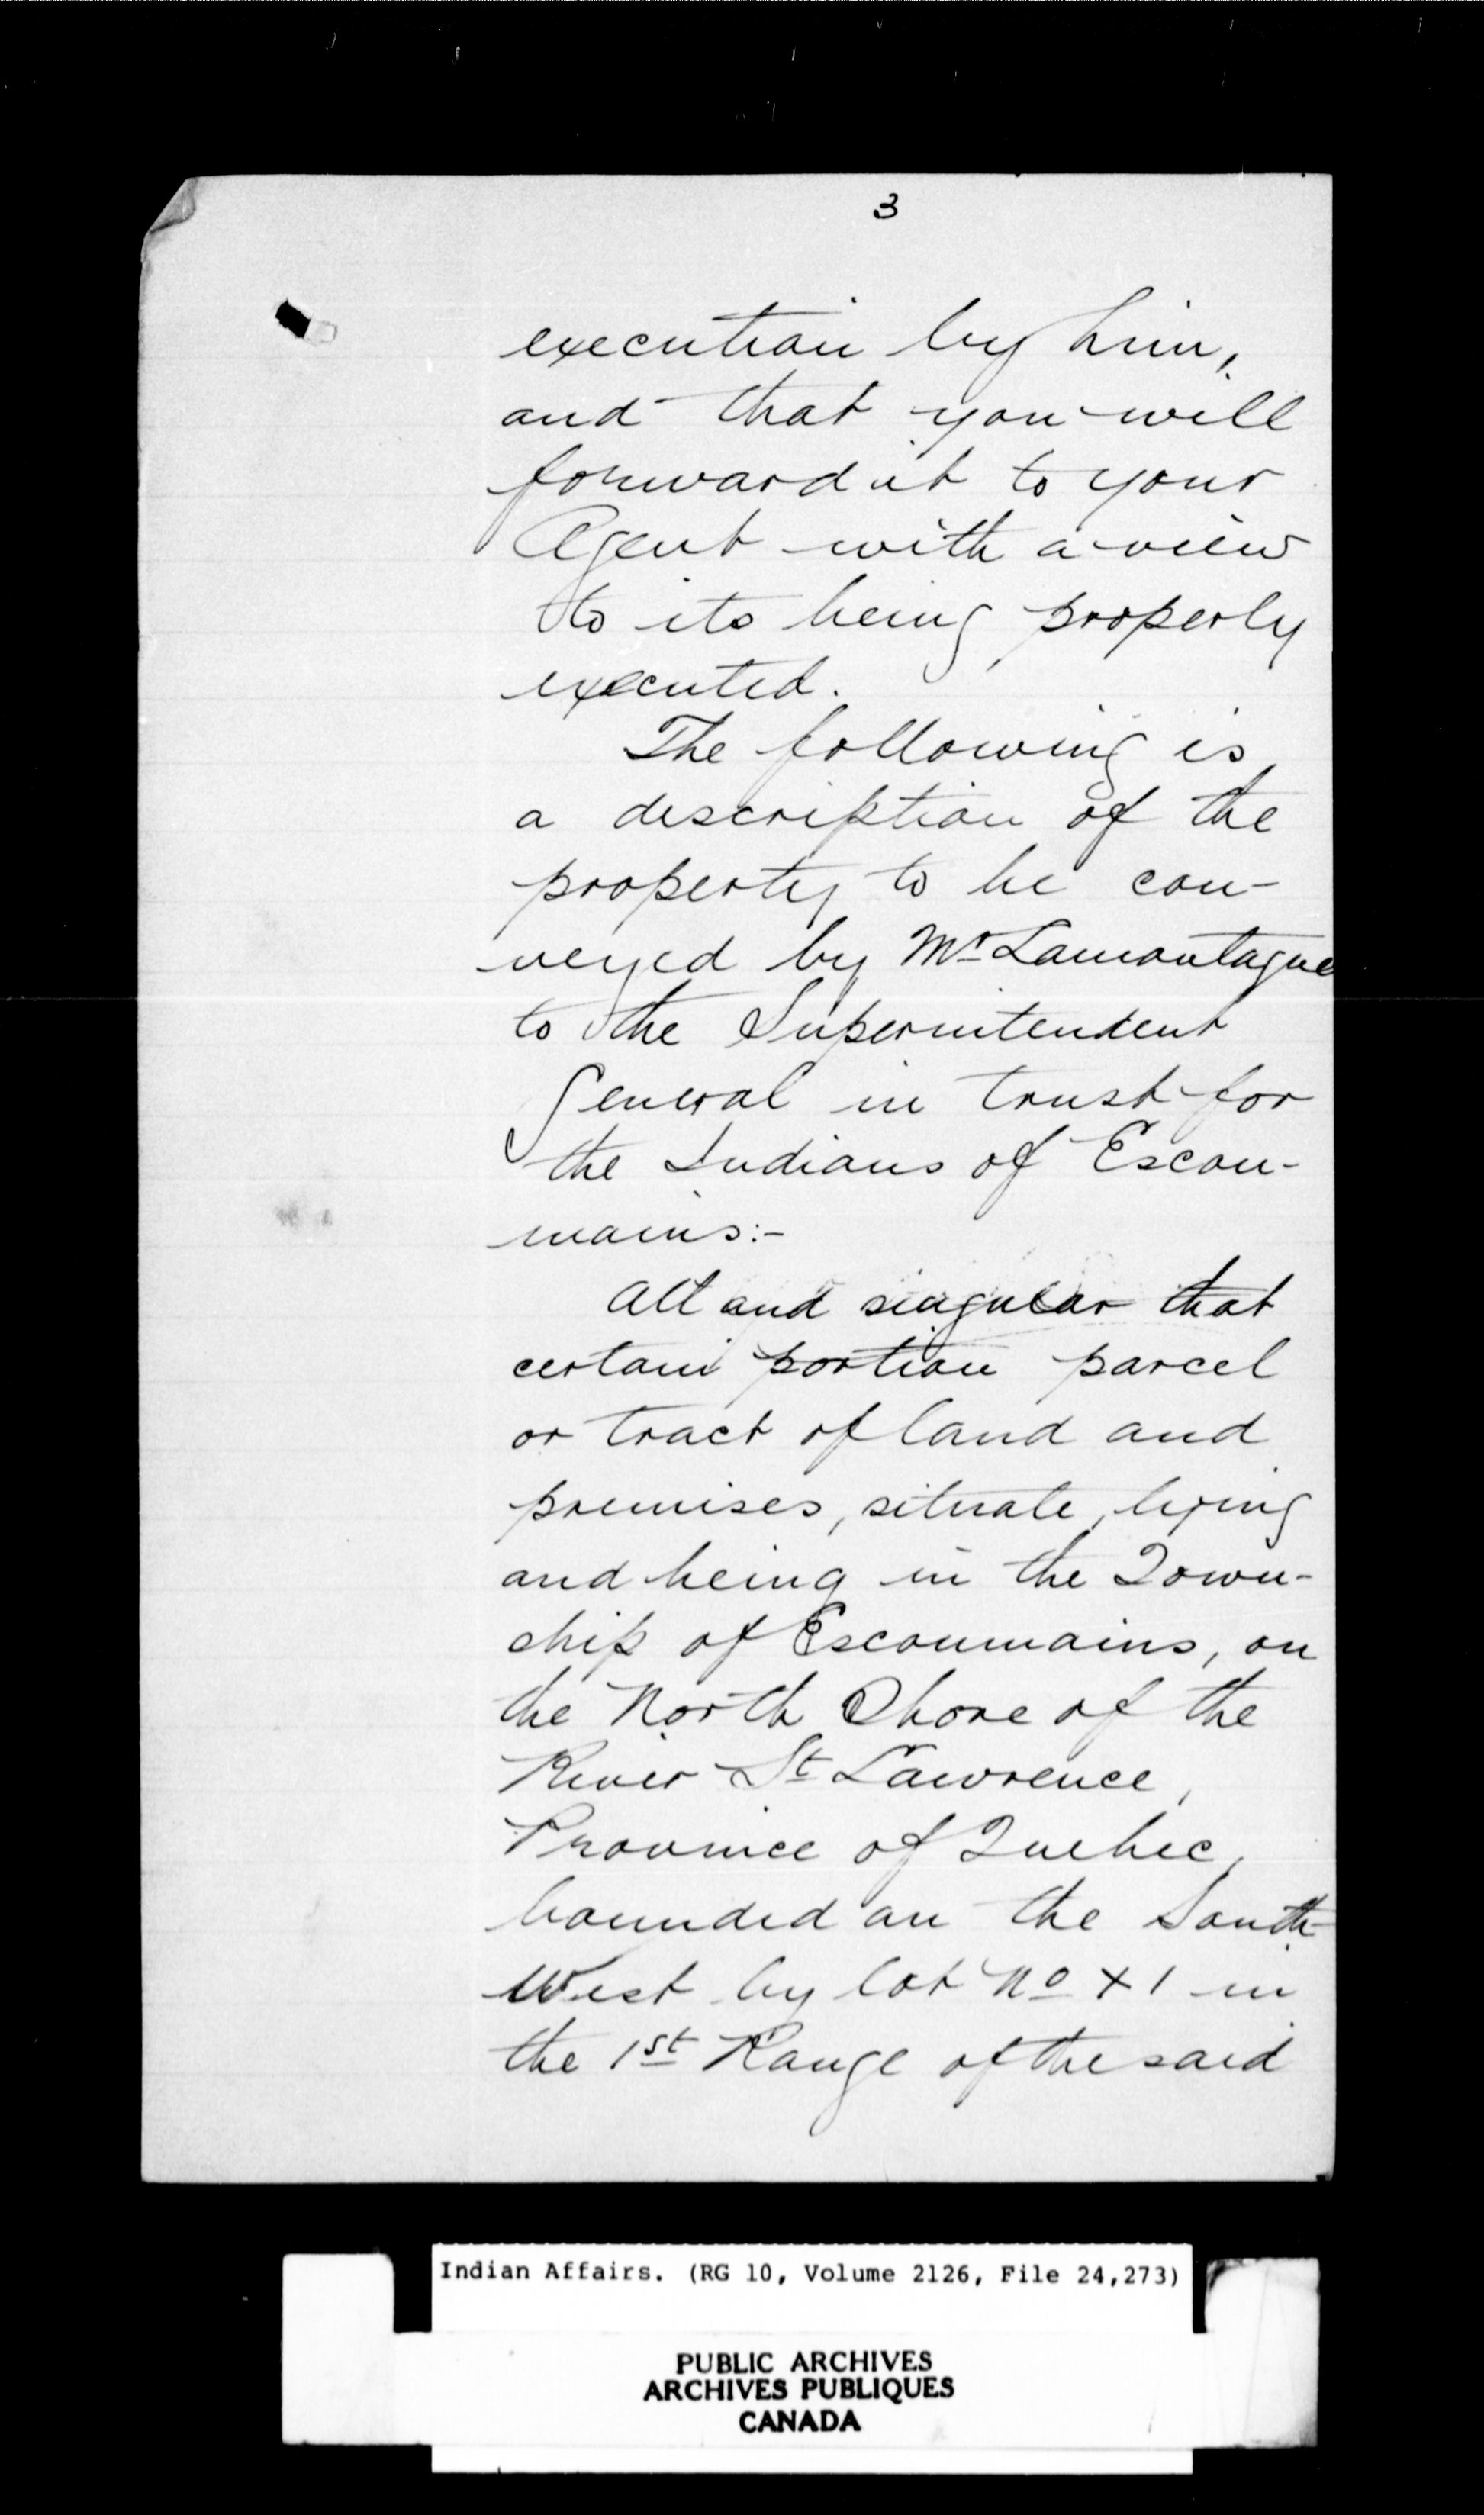 3
execution by him,
and that you will
forward it to your
Agent with a view
to its being properly
executed.
The following is
a description of the
property to be con-
veyed by Mr Lamontagne
to the Superintendent
General in trust for
the Indians of Escou-
mains:-
All and singular that
certain portion parcel
or tract of land and
premises, situate, lying
and being in the Town-
ship of Escoumains, on
the North Shore of the
River St Lawrence,
Province of Quebec,
bounded on the South
West by lot No X1 in
the 1st Range of the said
Indian Affairs. (RG 10, Volume 2126, File 24,273)
PUBLIC ARCHIVES
ARCHIVES PUBLIQUES
CANADA